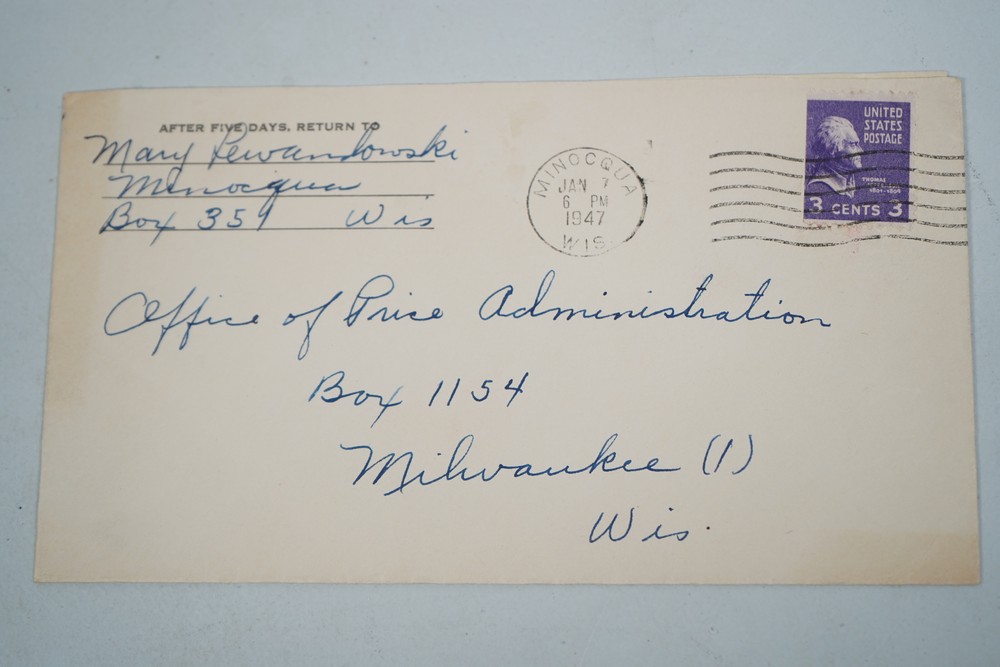 AFTER FIVE DAYS, RETURN TO
Mary Lewandowski
Minocqua
Box 359 Wis
MINOCQUA
JAN 7
6 PM
1947
WIS.
UNITED
STATES
POSTAGE
THOMAS
3 CENTS 3
Office of Price Administration
Box 1154
Milwaukee (1)
Wis.